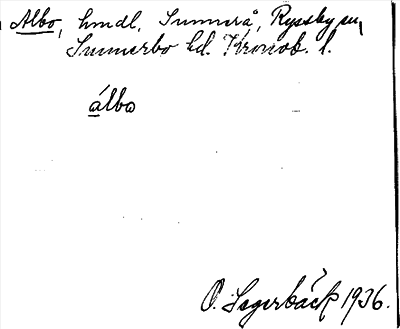 Albo, hmdl, Sunnerå, Ryssby sn,
Sunnerbo hd. Kronob. l.
álbo
O. Segerbäck 1936.